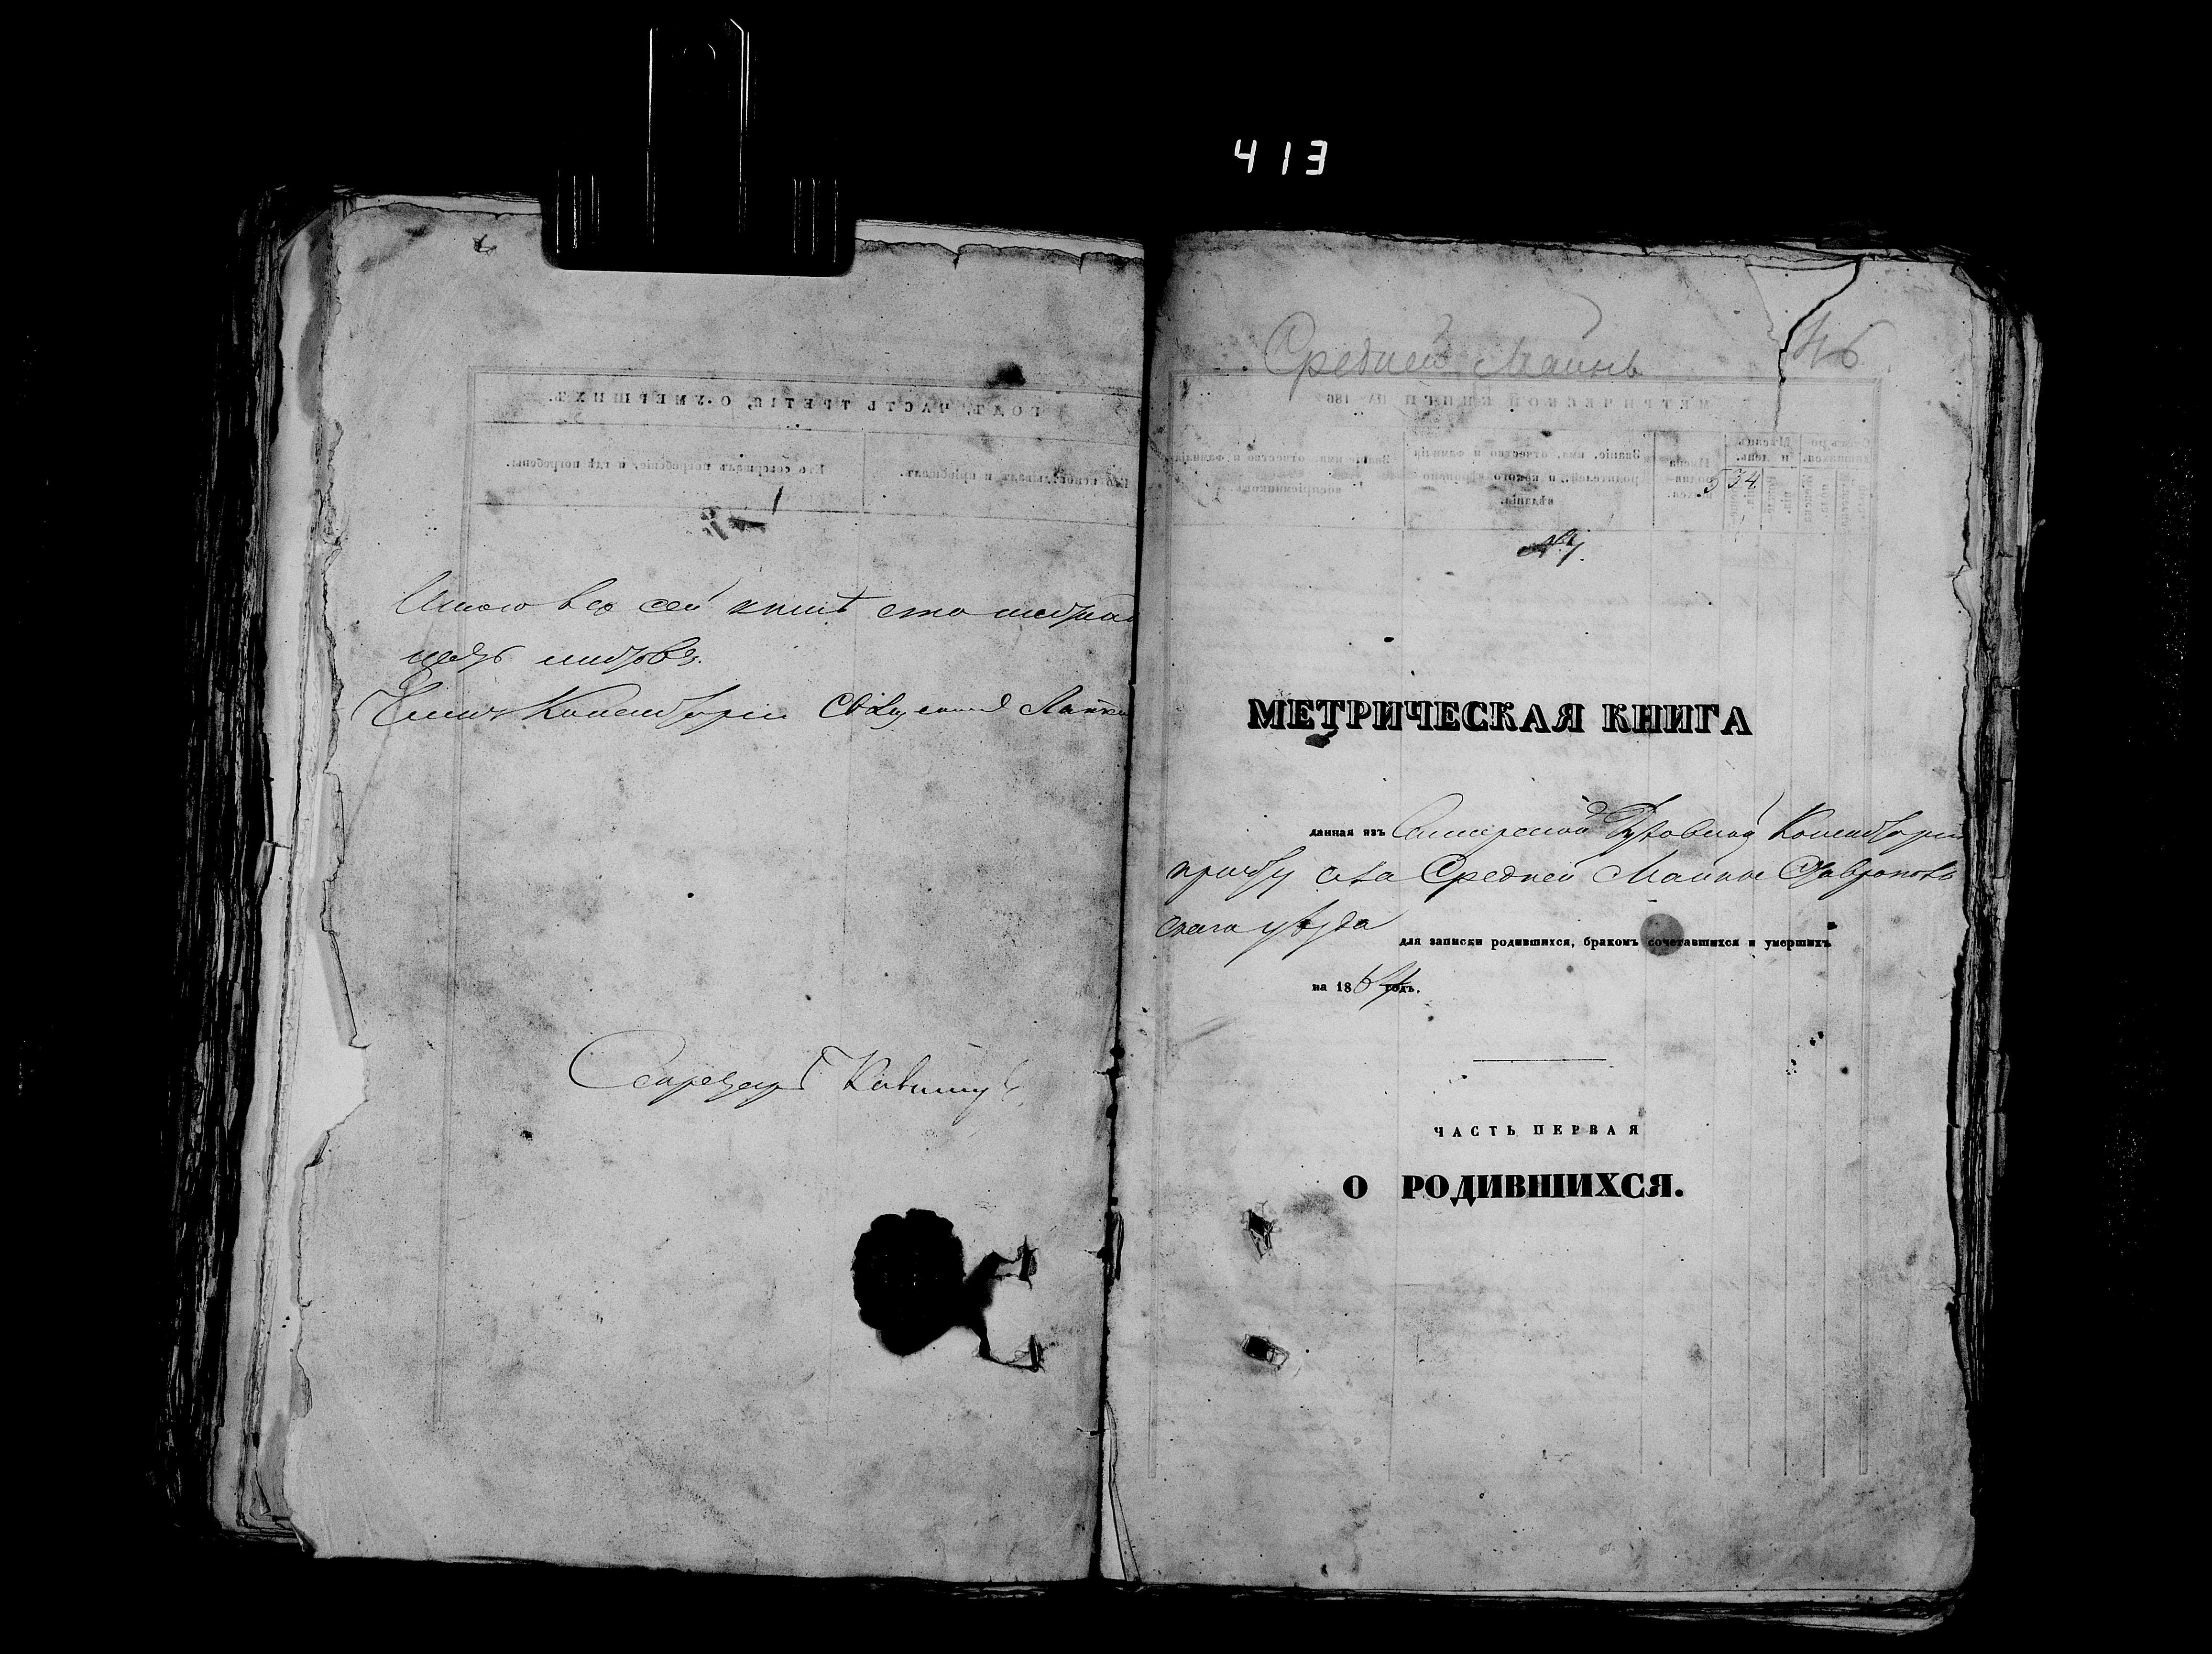 413
Итого въ сей книгѣ сто шестнад
цать листовъ.
Членъ Консисторіи Священникъ
Секретарь
Средней Майнѣ
534
№
МЕТРИЧЕСКАЯ КНИГА
данная изъ Самарской Духовной Консисторіи
причту села Средней Майны Ставрополь
скаго уѣзда
для записки родившихся, бракомъ сочетавшихся и умершихъ
на 1864 годъ.
ЧАСТЬ ПЕРВАЯ
О РОДИВШИХСЯ.